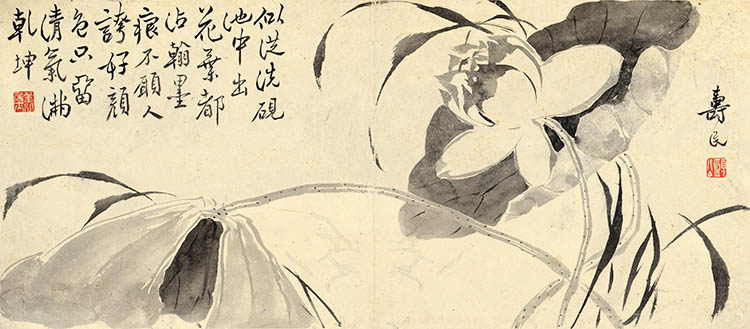 似從洗硯
池中出
花葉都
沾翰墨
痕不願人
誇好顏
色只留
清氣滿
乾坤
壽民